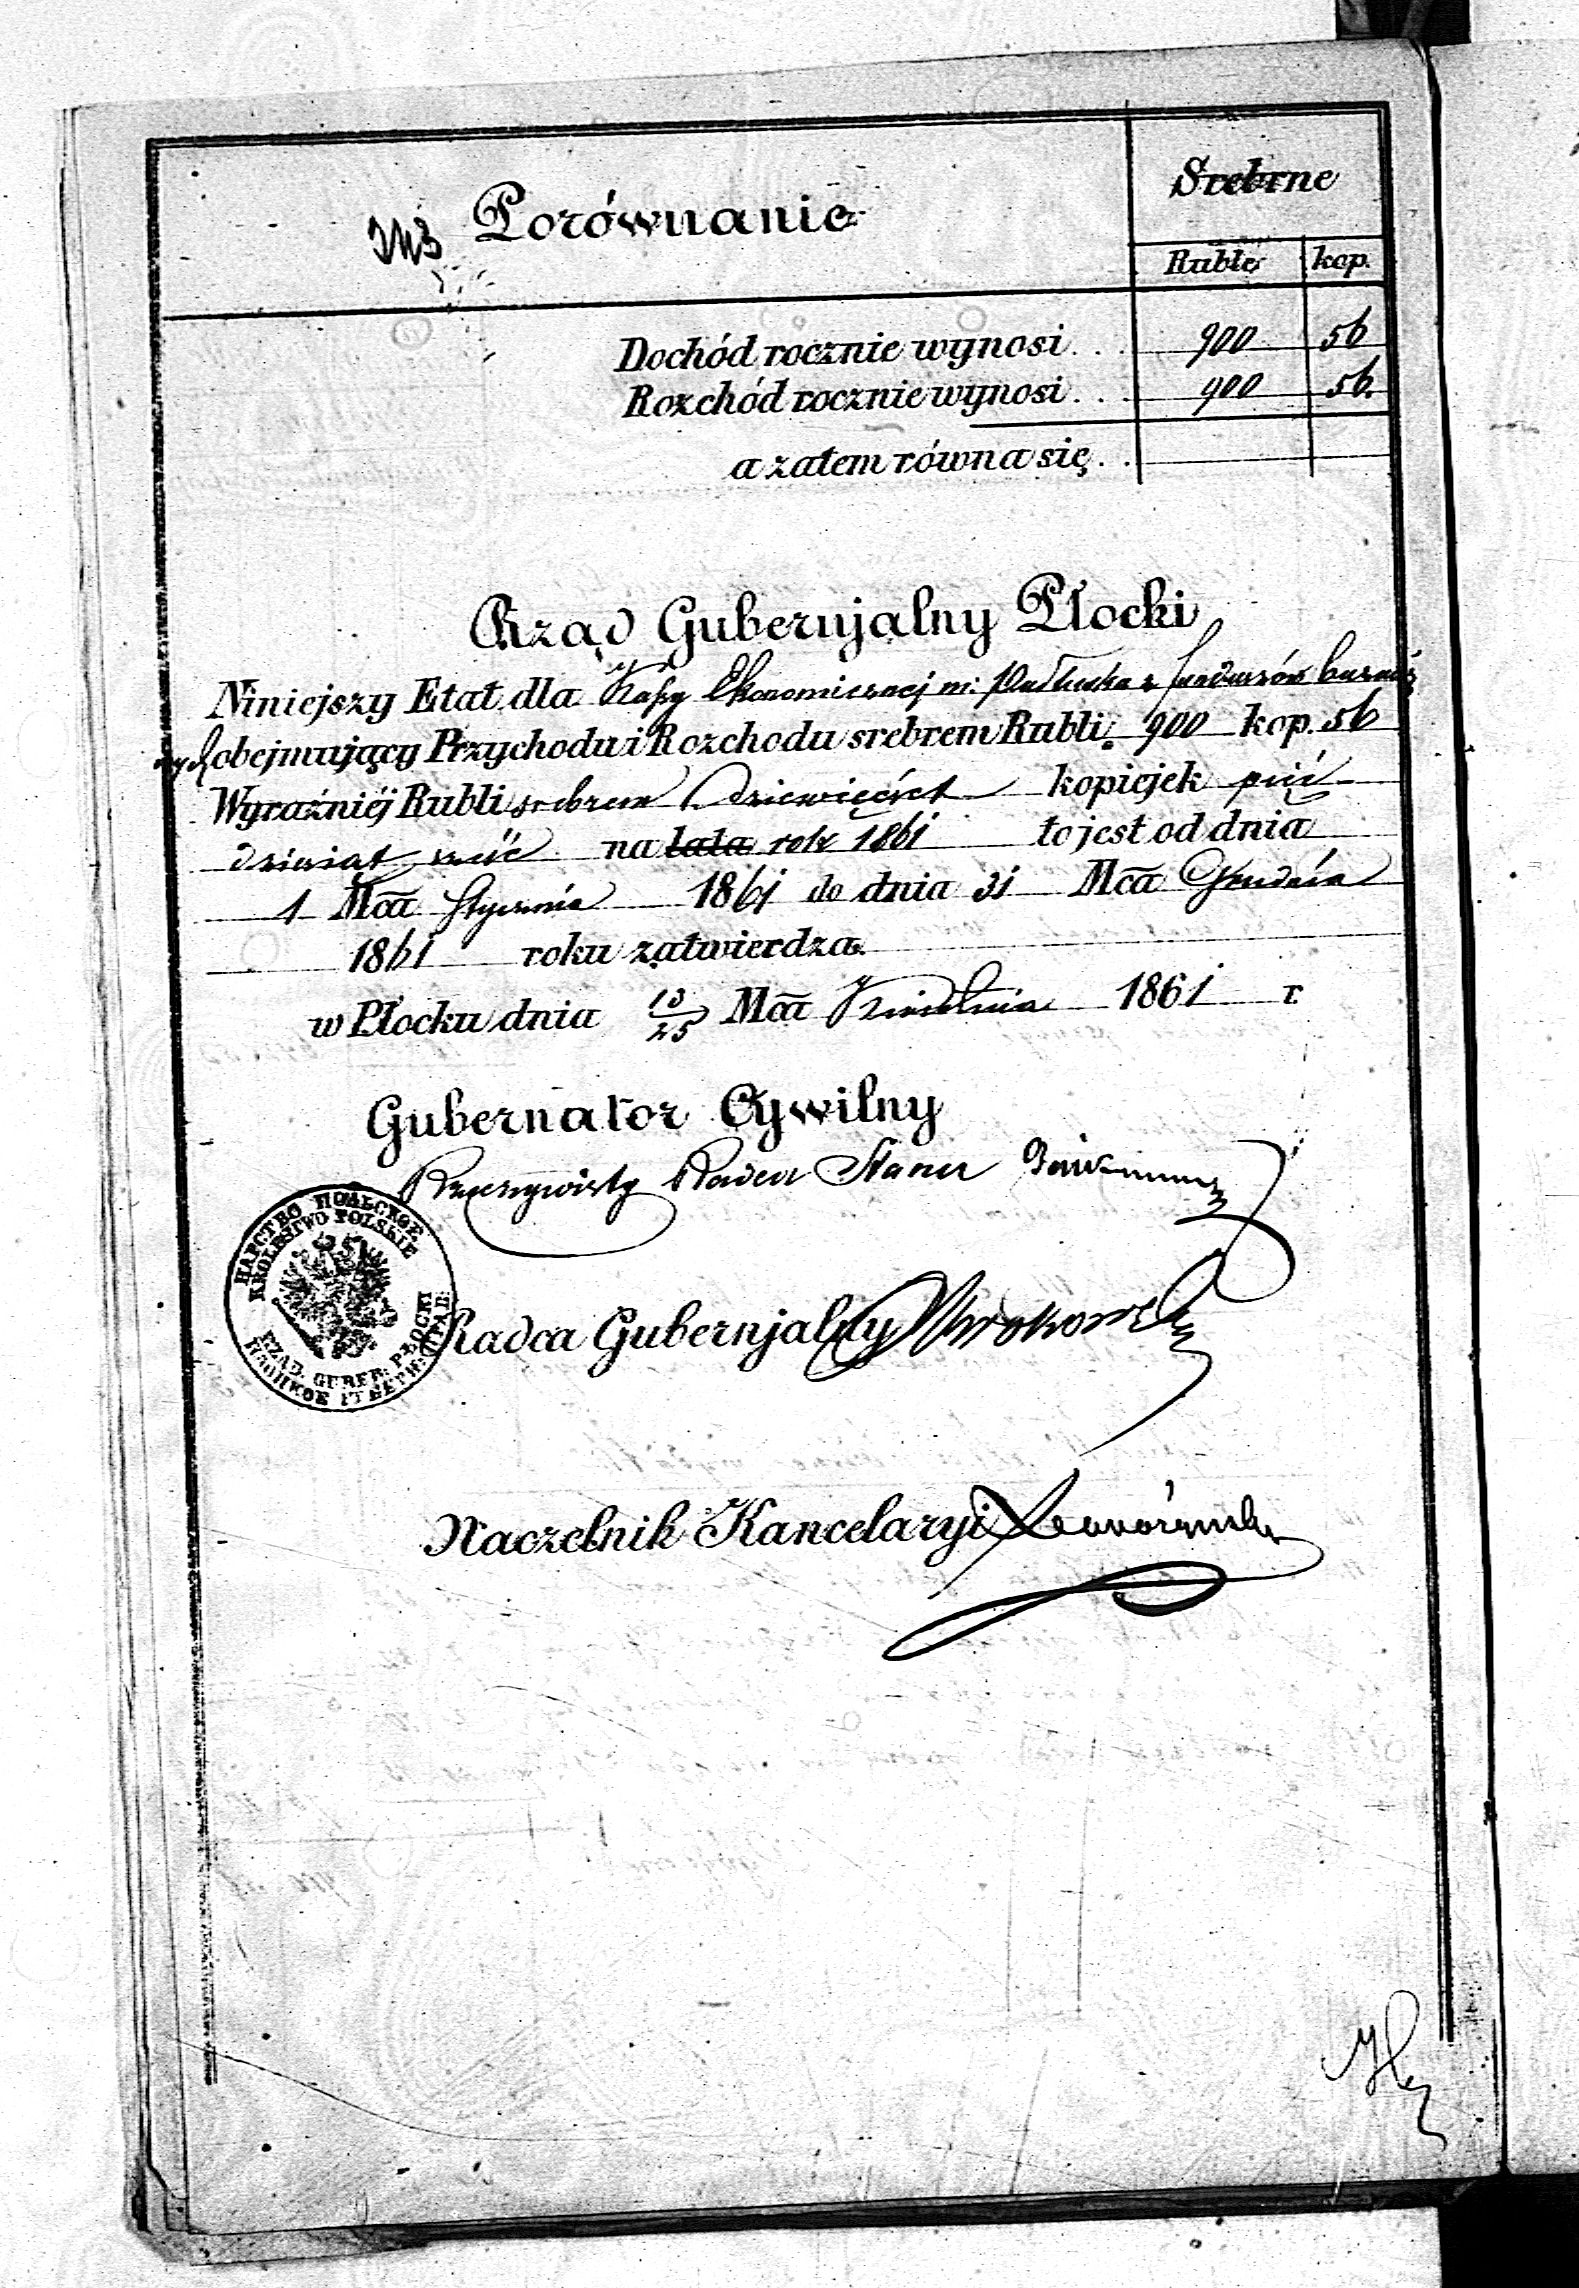 Porównanie
Srebrne
Ruble kop.
Dochód rocznie wynosi . . . 900 56
Rozchód rocznie wynosi . . . 900 56.
a zatem równa się . .
Rząd Gubernjalny Płocki
Niniejszy Etat dla Kassy Ekonomicznej m: Pułtuska z funduszów
obejmujący Przychodu i Rozchodu srebrem Rubli 900 kop. 56
Wyraźniéj Rubli srebrem Dziewięćset kopiejek pięć
dziesiąt sześć na lata rok 1861 to jest od dnia
1 Mca Stycznia 1861 do dnia 31 Mca Grudnia
1861 roku zatwierdza.
w Płocku dnia 13/25 Mca Kwietnia 1861 r.
Gubernator Cywilny
Rzeczywisty Radca Stanu
ЦАРСТВО ПОЛЬСКОЕ
KRÓLESTWO POLSKIE
RZĄD. GUBER: PŁOCKI
Radca Gubernjalny
Naczelnik Kancelaryi